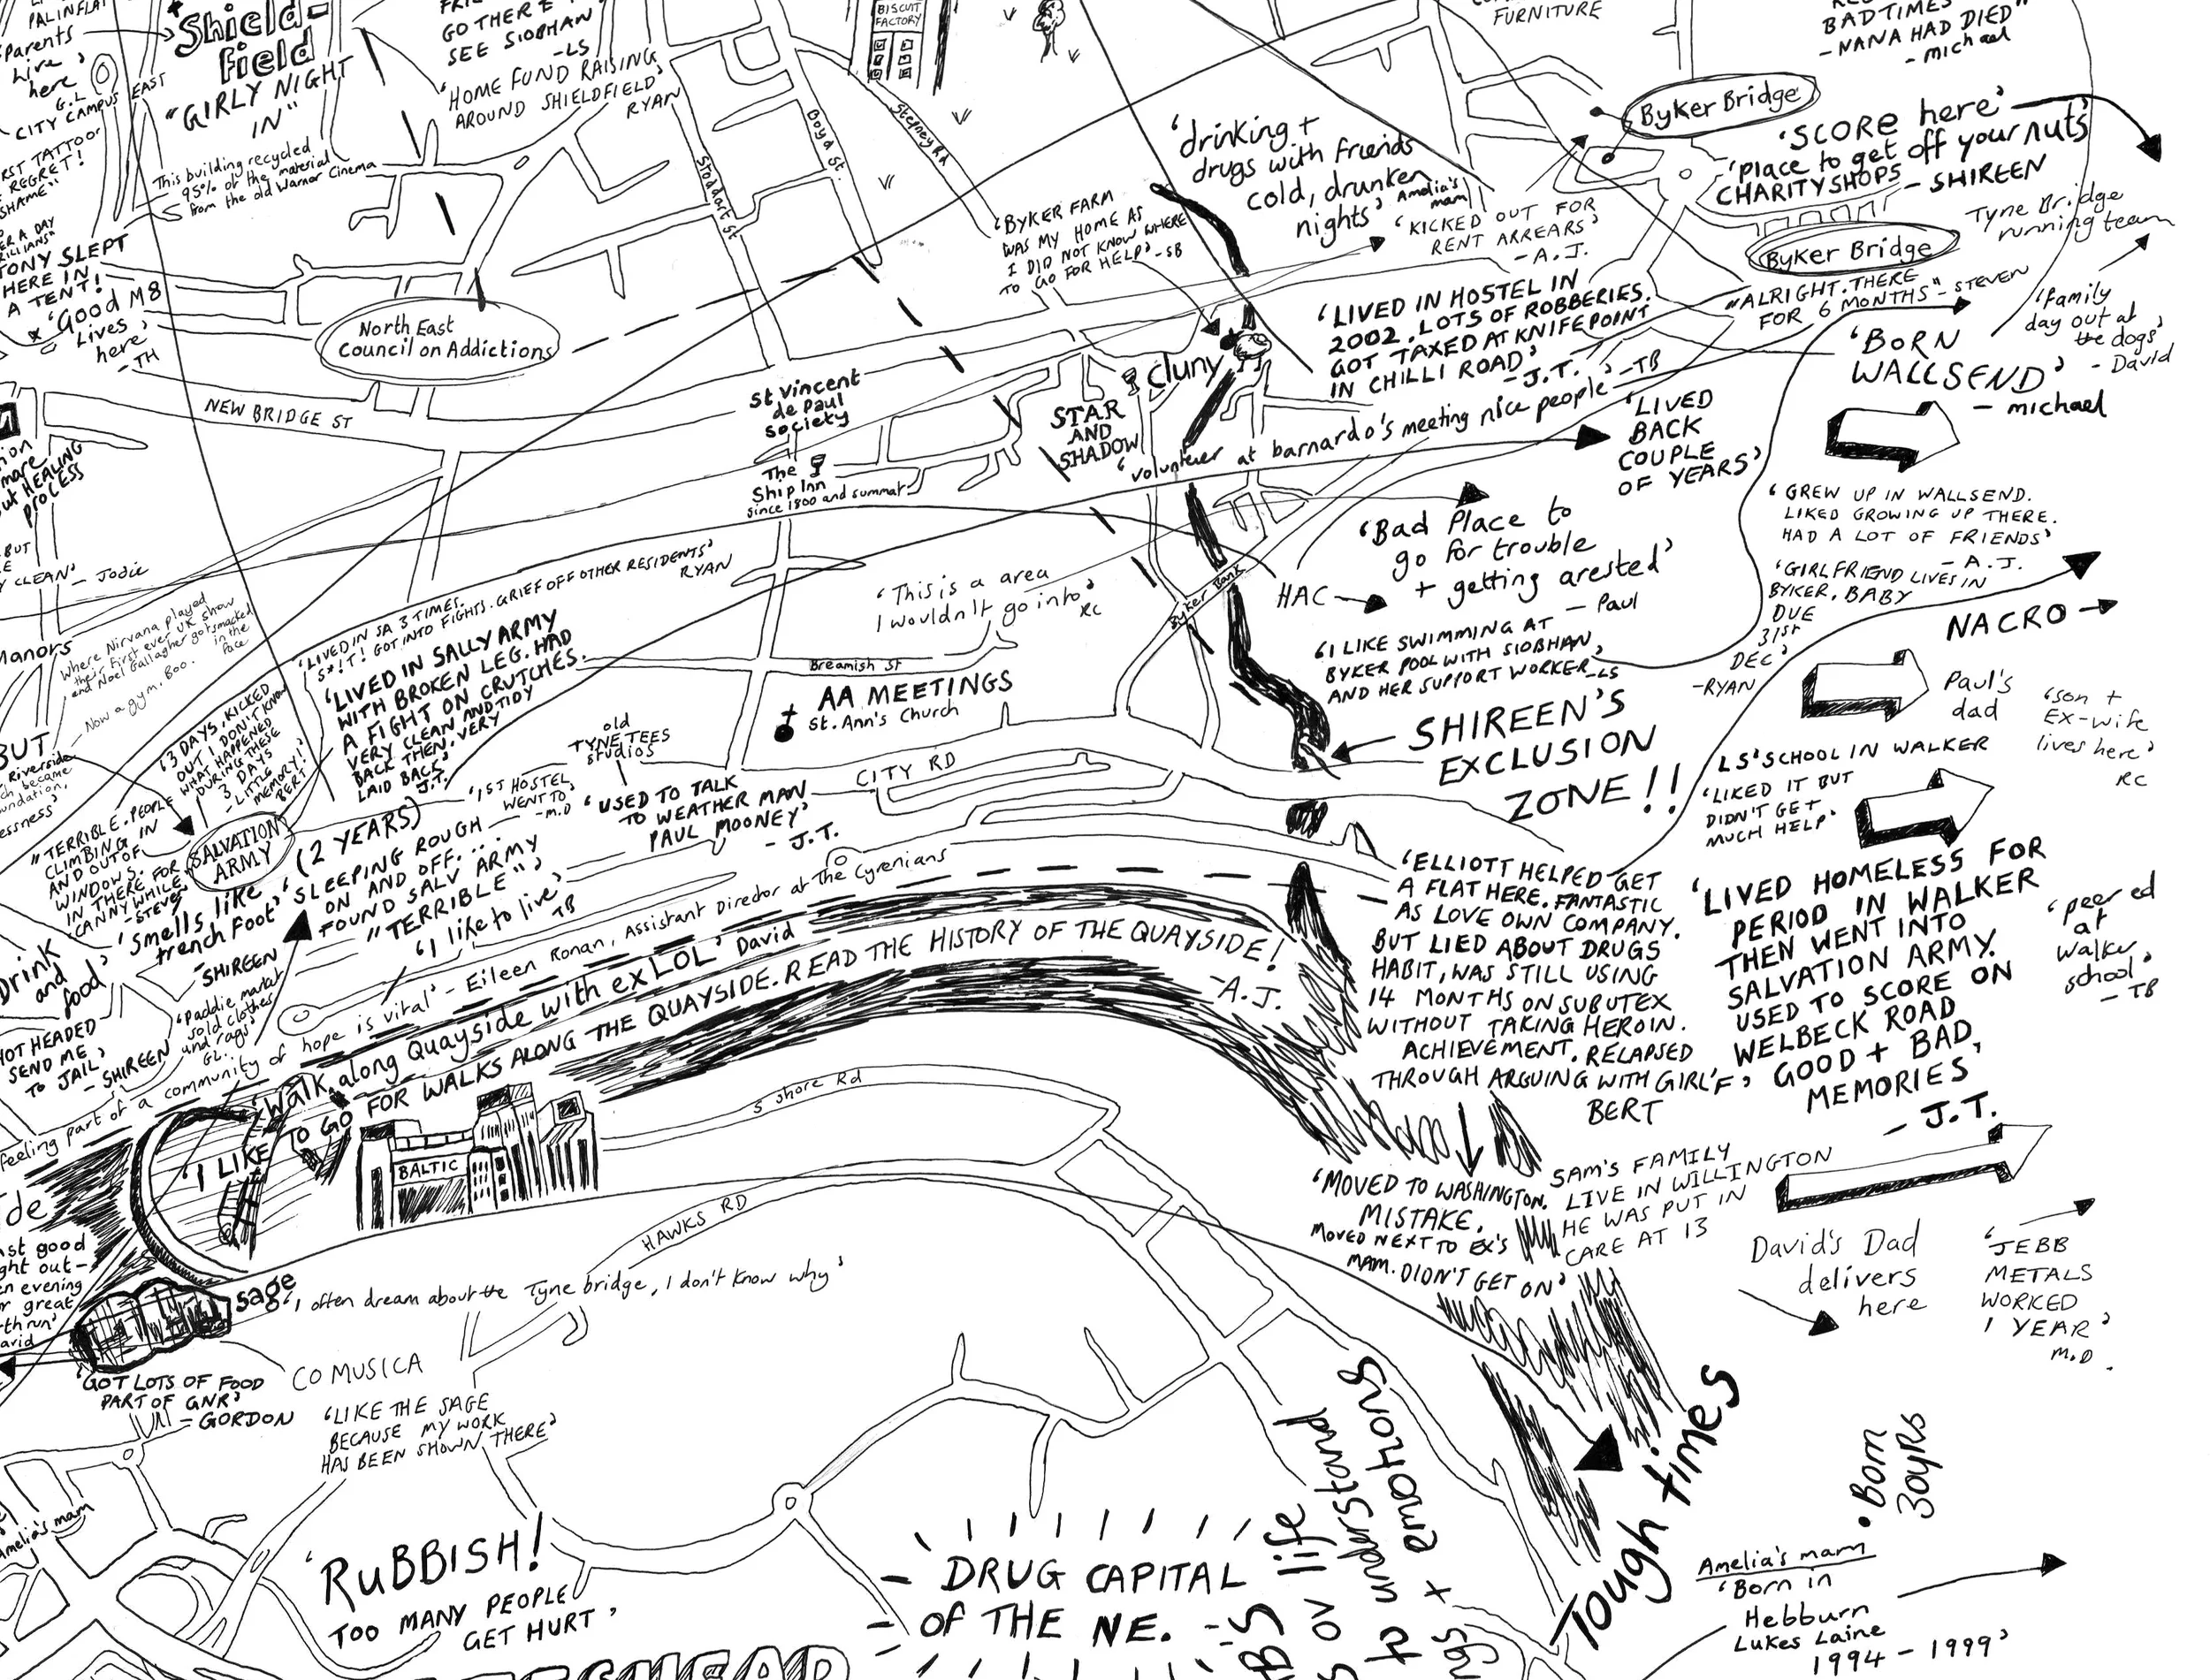 PALINFLAT
'Parents
live
here'
G.L
CITY CAMPUS EAST
Shield-
field
"GIRLY NIGHT
IN"
GO THERE
SEE SIOBHAN'
-LS
'HOME FUND RAISING
AROUND SHIELDFIELD'
RYAN
BISCUIT
FACTORY
FURNITURE
BAD TIMES
-NANA HAD DIED"
- michael
This building recycled
95% of the material
from the old Warner Cinema
RST TATTOO
REGRET!
SHAME"
TONY SLEPT
HERE IN
A TENT!
x 'Good M8
Lives
here'
-TH
North East
Council on Addictions
NEW BRIDGE ST
Stoddart St
Boyd St.
Stepney Rd
'BYKER FARM
WAS MY HOME AS
I DID NOT KNOW WHERE
TO GO FOR HELP' -SB
'drinking +
drugs with friends
cold, drunken
nights'
Amelia's
mam
'KICKED OUT FOR
RENT ARREARS'
- A.J.
Byker Bridge
'SCORE here'
'place to get off your nuts'
CHARITY SHOPS - SHIREEN
Byker Bridge
Tyne Bridge
running team
"ALRIGHT. THERE
FOR 6 MONTHS" - STEVEN
'family
day out at
the dogs'
- David
'LIVED IN HOSTEL IN
2002. LOTS OF ROBBERIES.
GOT TAXED AT KNIFEPOINT
IN CHILLI ROAD'
- J.T.
'BORN
WALLSEND'
- michael
St Vincent
de Paul
Society
The
Ship Inn
since 1800 and summat
Cluny
STAR
AND
SHADOW
'volunteer at barnardo's meeting nice people' -TB
'LIVED
BACK
COUPLE
OF YEARS'
'Bad Place to
go for trouble
+ getting arested'
- Paul
HAC
'GREW UP IN WALLSEND.
LIKED GROWING UP THERE.
HAD A LOT OF FRIENDS'
- A.J.
'GIRLFRIEND LIVES IN
BYKER, BABY
DUE
31st
DEC'
-RYAN
NACRO
HEALING
PROCESS
Y CLEAN' - Jodie
Manors
Where Nirvana played
their first ever UK show
and Noel Gallagher got smacked
in the
face
- Now a gym. Boo.
BUT
Riverside
'LIVED IN SA 3 TIMES.
S*!T! GOT INTO FIGHTS. GRIEF OFF OTHER RESIDENTS'
RYAN
'LIVED IN SALLY ARMY
WITH BROKEN LEG. HAD
A FIGHT ON CRUTCHES.
VERY CLEAN AND TIDY
BACK THEN. VERY
LAID BACK'
J.T.
'3 DAYS, KICKED
OUT I DON'T KNOW
WHAT HAPPENED
DURING THESE
3 DAYS
- LITTLE
MEMORY!'
BERT
'This is a area
I wouldn't go into'
RC
Breamish St
AA MEETINGS
St. Ann's Church
Byker Bank
'I LIKE SWIMMING AT
BYKER POOL WITH SIOBHAN,
AND HER SUPPORT WORKER' -LS
SHIREEN'S
EXCLUSION
ZONE!!
Paul's
dad
'son +
Ex-wife
lives here'
RC
LS' SCHOOL IN WALKER
'LIKED IT BUT
DIDN'T GET
MUCH HELP'
old
TYNE TEES
Studios
'USED TO TALK
TO WEATHER MAN
PAUL MOONEY'
- J.T.
CITY RD
'1ST HOSTEL
WENT TO'
-M.D
"TERRIBLE. PEOPLE
CLIMBING IN
AND OUT OF
WINDOWS.
IN THERE FOR
'CANNY WHILE'
-STEVEN
SALVATION
ARMY
(2 YEARS)
'SLEEPING ROUGH
ON AND OFF...
FOUND SALV ARMY
"TERRIBLE"'
'Smells like
trench foot'
-SHIREEN
'I like to live'
TB
Drink
and
food'
HOT HEADED
SEND ME
TO JAIL'
- SHIREEN
'Paddie market
sold clothes
and rags'
GL.
feeling part of a community of hope is vital' - Eileen Ronan, Assistant Director at The Cyrenians
'Walk along Quayside with ex LOL' David
'I LIKE TO GO FOR WALKS ALONG THE QUAYSIDE. READ THE HISTORY OF THE QUAYSIDE!
-A.J.
'ELLIOTT HELPED GET
A FLAT HERE. FANTASTIC
AS LOVE OWN COMPANY.
BUT LIED ABOUT DRUGS
HABIT, WAS STILL USING
14 MONTHS ON SUBUTEX
WITHOUT TAKING HEROIN.
ACHIEVEMENT. RELAPSED
THROUGH ARGUING WITH GIRL'F'
BERT
'LIVED HOMELESS FOR
PERIOD IN WALKER
THEN WENT INTO
SALVATION ARMY.
USED TO SCORE ON
WELBECK ROAD
GOOD + BAD,
MEMORIES'
- J.T.
'peer ed
at
walker
school'
- TB
BALTIC
S Shore Rd
HAWKS RD
'MOVED TO WASHINGTON.
MISTAKE.
MOVED NEXT TO EX'S
MAM. DIDN'T GET ON'
SAM'S FAMILY
LIVE IN WILLINGTON
HE WAS PUT IN
CARE AT 13
David's Dad
delivers
here
'JEBB
METALS
WORKED
1 YEAR'
M.D.
sage
'I often dream about the Tyne bridge, I don't know why'
CO MUSICA
'GOT LOTS OF FOOD
PART OF GNR'
- GORDON
'LIKE THE SAGE
BECAUSE MY WORK
HAS BEEN SHOWN THERE'
Amelia's mam
'RUBBISH!
TOO MANY PEOPLE
GET HURT'
DRUG CAPITAL
OF THE NE.
ov life
to understand
+ emotions
Tough times
• Born
30yRs
Amelia's mam
'Born in
Hebburn
Lukes Laine
1994 - 1999'